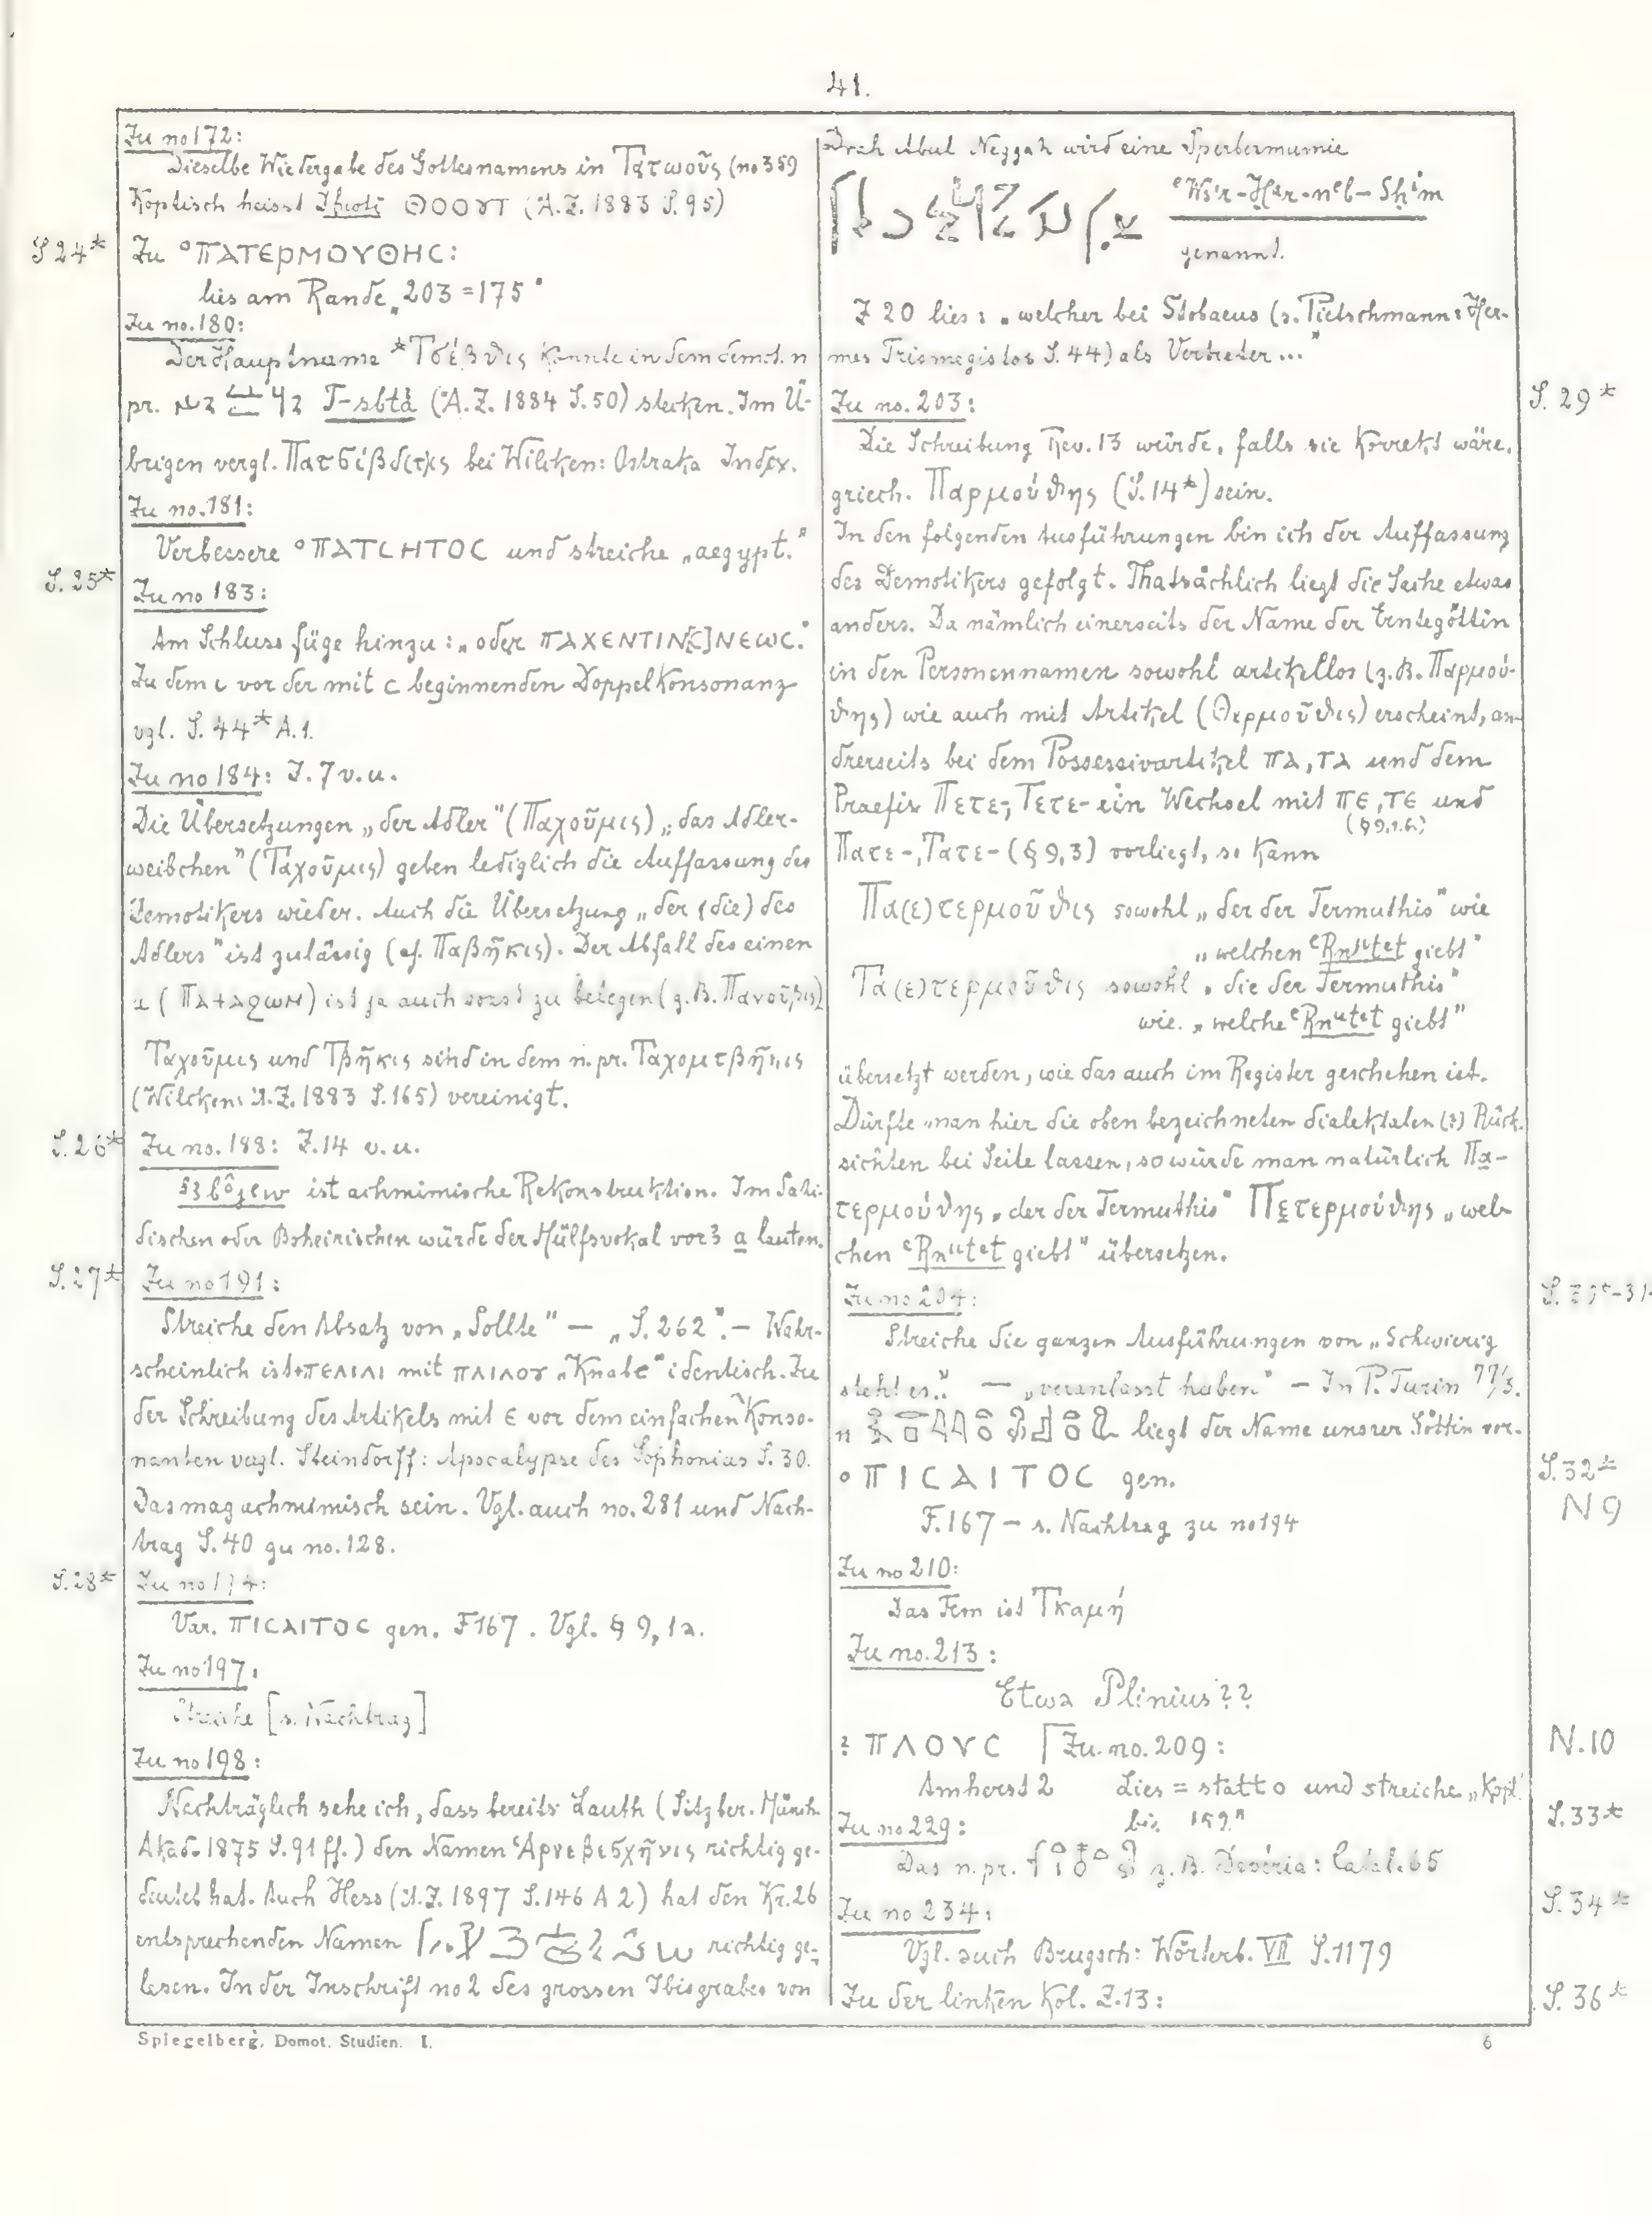 41.
Zu no 172:
Dieselbe Wiedergabe des Gottesnamens in Τατωοῦς (no 359)
Koptisch heisst ΘΟΟΥΤ (A.Z. 1883 S. 95)
S 24*
Zu °ΠΑΤΕΡΜΟΥΘΗC:
lies am Rande „203 = 175"
Zu no. 180:
Der Hauptname *Τσέβθις könnte in dem demot. n
pr. T-sbtȧ (A.Z. 1884 S. 50) stecken. Im Ü-
brigen vergl. bei Wilcken: Ostraka Index.
Zu no. 181:
Verbessere °ΠΑΤCΗΤΟC und streiche „aegypt."
S. 25*
Zu no 183:
Am Schluss füge hinzu: „oder ΠΑΧΕΝΤΙΝ[C]ΝΕΩC."
Zu dem ι vor der mit c beginnenden Doppelkonsonanz
vgl. S. 44* A. 1.
Zu no 184: Z. 7 v. u.
Die Übersetzungen „der Adler" (Παχοῦμις) „das Adler-
weibchen" (Ταχοῦμις) geben lediglich die Auffassung des
Demotikers wieder. Auch die Übersetzung „der (die) des
Adlers" ist zulässig (cf. Παβῆκις). Der Abfall des einen
ist ja auch sonst zu belegen (z. B. Πανοῦβις)
Ταχοῦμις und Τβῆκις sind in dem n. pr. Ταχομτβῆκις
(Wilcken: A.Z. 1883 S. 165) vereinigt.
S. 26*
Zu no. 188: Z. 14 v. u.
ist achmimische Rekonstruktion. Im Sahi-
dischen oder Boheirischen würde der Hülfsvokal vor 3 a lauten.
S. 27*
Zu no 191:
Streiche den Absatz von „Sollte" — „S. 262". — Wahr-
scheinlich ist ⲡⲉⲗⲓⲗⲓ mit ⲡⲗⲓⲗⲟⲩ „Knabe" identisch. Zu
der Schreibung des Artikels mit ⲉ vor dem einfachen Konso-
nanten vergl. Steindorff: Apocalypse des Sophonias S. 30.
Das mag achmimisch sein. Vgl. auch no. 281 und Nach-
trag S. 40 zu no. 128.
S. 28*
Zu no 194:
Var. ΠΙCΑΙΤΟC gen. F 167. Vgl. § 9, 1a.
Zu no 197:
Streiche [s. Nachtrag]
Zu no 198:
Nachträglich sehe ich, dass bereits Lauth (Sitzber. Münch.
Akad. 1875 S. 91 ff.) den Namen Ἁρνεβεσχῆνις richtig ge-
deutet hat. Auch Hess (A.Z. 1897 S. 146 A 2) hat den Kr. 26
entsprechenden Namen richtig ge-
lesen. In der Inschrift no 2 des grossen Ibisgrabes von
Drah Abul Neggah wird eine Sperbermumie
genannt.
Z 20 lies: „welcher bei Stobaeus (s. Pietschmann: Her-
mes Trismegistos S. 44) als Vertreter ..."
Zu no. 203:
S. 29*
Die Schreibung Rev. 13 würde, falls sie korrekt wäre,
griech. Παρμούθης (S. 14*) sein.
In den folgenden Ausführungen bin ich der Auffassung
des Demotikers gefolgt. Thatsächlich liegt die Sache etwas
anders. Da nämlich einerseits der Name der Erntegöttin
in den Personennamen sowohl artikellos (z. B. Παρμού-
θης) wie auch mit Artikel (Θερμοῦθις) erscheint, an-
drerseits bei dem Possessivartikel ⲡⲁ, ⲧⲁ und dem
Praefix Πετε-, Τετε- ein Wechsel mit ⲡⲉ, ⲧⲉ und
(§ 9, 1. b.)
Πατε-, Τατε- (§ 9, 3) vorliegt, so kann
Πα(ε)τερμοῦθις sowohl „der der Termuthis" wie
„welchen ᶜRnᵘtet giebt"
Τα(ε)τερμοῦθις sowohl „die der Termuthis"
wie „welche ᶜRnᵘtet giebt"
übersetzt werden, wie das auch im Register geschehen ist.
Dürfte man hier die oben bezeichneten dialektalen (?) Rück-
sichten bei Seite lassen, so würde man natürlich Πα-
τερμούθης „der der Termuthis" Πετερμούθης „wel-
chen ᶜRnᵘtet giebt" übersetzen.
Zu no 204:
Streiche die ganzen Ausführungen von „Schwierig
steht es.." — „veranlasst haben" — In P. Turin 77/3.
liegt der Name unsrer Göttin vor.
°ΠΙCΑΙΤΟC gen.
S. 32*
N 9
F. 167 – s. Nachtrag zu no 194
Zu no 210:
Das Fem ist Τκαμή
Zu no. 213:
Etwa Plinius??
? ΠΛΟΥC
N. 10
Amherst 2
Zu no. 209:
Lies = statt o und streiche „Kopt."
bis 159"
Zu no 229:
S. 33*
Das n. pr. z. B. Devéria: Catal. 65
Zu no 234:
S. 34*
Vgl. auch Brugsch: Wörterb. VII S. 1179
Zu der linken Kol. Z. 13:
S. 36*
Spiegelberg, Demot. Studien. I.
6